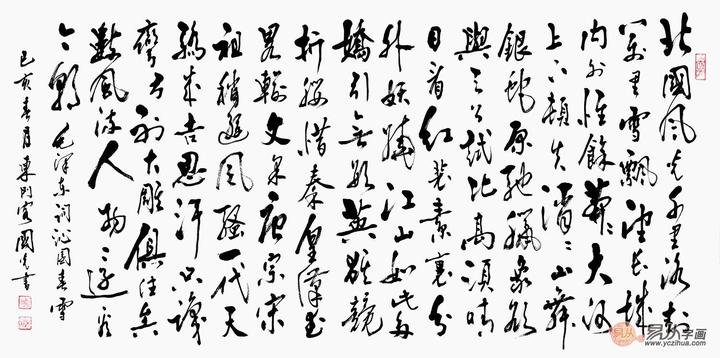 北國風光千里冰封
萬里雪飄望長城
内外惟餘莽莽大河
上下頓失滔滔山舞
銀蛇原馳臘象欲
與天公試比高須晴
日看紅裝素裹分
外妖嬈江山如此多
嬌引無數英雄競
折腰惜秦皇漢武
略輸文采唐宗宋
祖稍遜風騷一代天
驕成吉思汗只識
彎弓射大雕俱往矣
數風流人物還看
今朝 毛澤東詞沁園春雪
己亥春月東 國 書
易从字画
www.yczihua.com